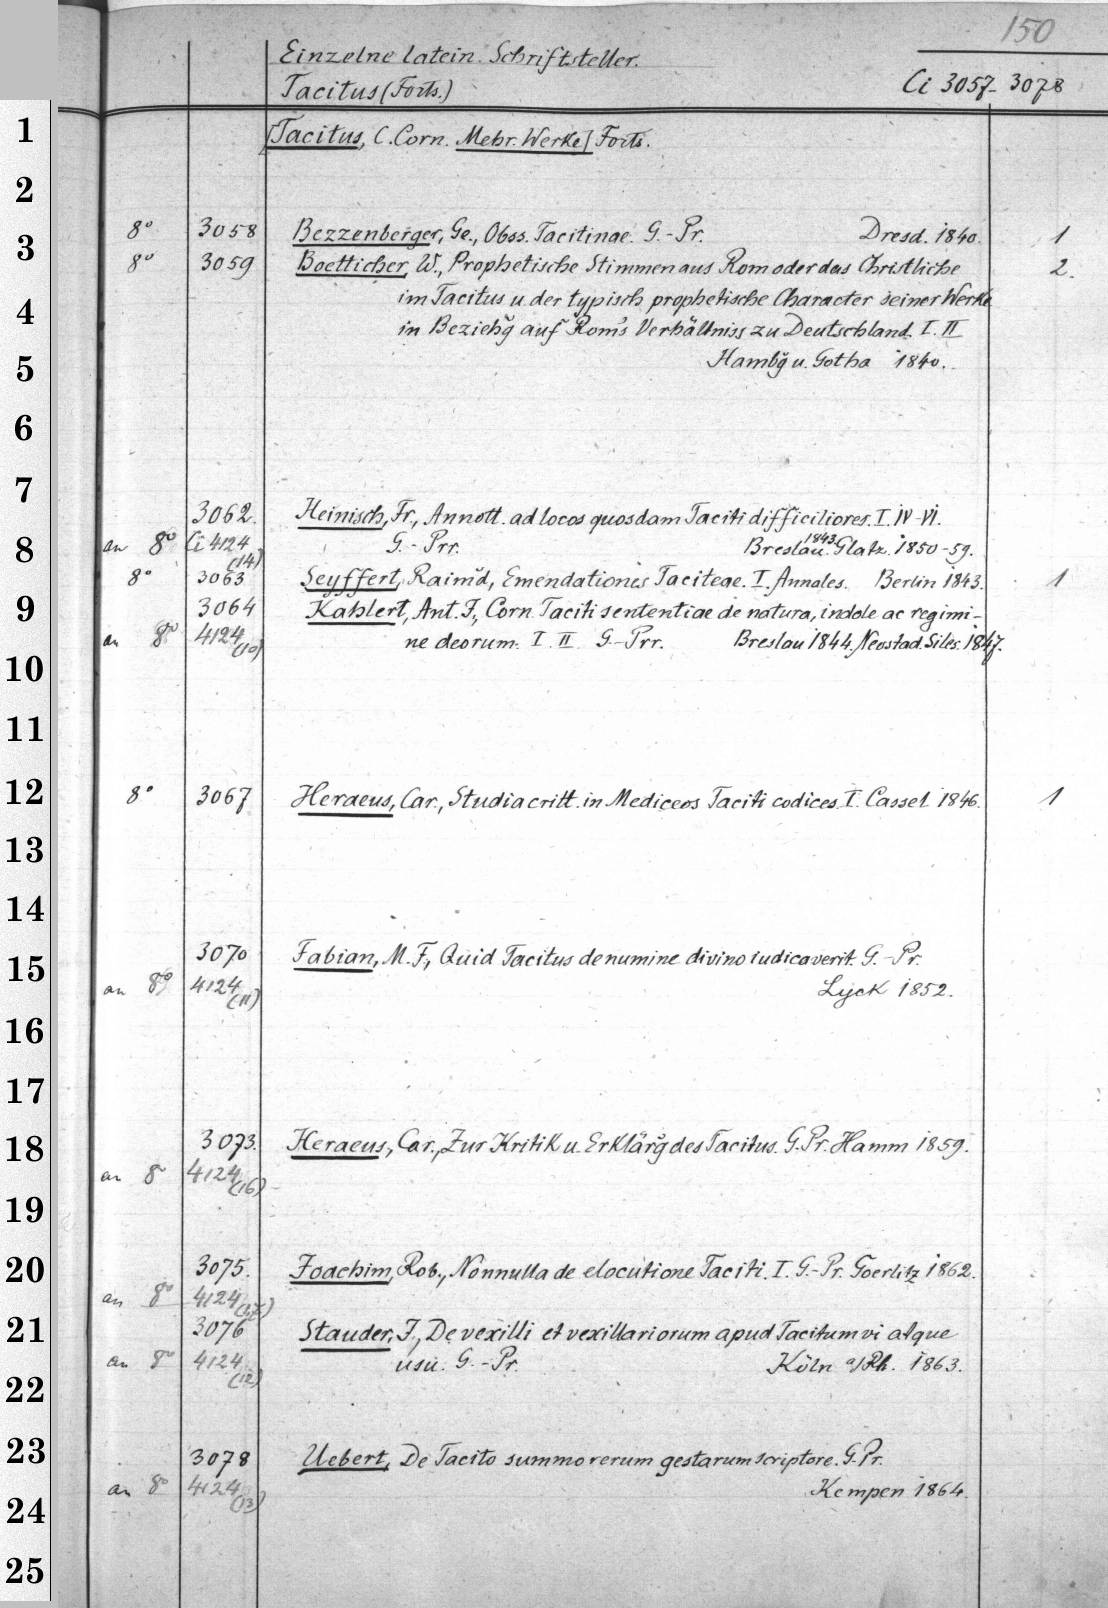 150
Einzelne latein. Schriftsteller.
Tacitus (Forts.)
Ci 3057-3078
[Tacitus, C. Corn. Mehr. Werke] Forts.
8° 3058 Bezzenberger, Ge., Obss. Tacitinae. G.-Pr. Dresd. 1840. 1
8° 3059 Boetticher, W., Prophetische Stimmen aus Rom oder das Christliche 2.
im Tacitus u. der typisch prophetische Character seiner Werke
in Beziehg̃ auf Rom's Verhältniss zu Deutschland. I. II
Hambg̃ u. Gotha 1840.
3062. Heinisch, Fr., Annott. ad locos quosdam Taciti difficiliores. I. IV-VI.
an 8° Ci 4124 (14) G.-Prr. Breslau 1843. u. Glatz. 1850-59.
8° 3063 Seyffert, Raim̃d, Emendationes Taciteae. I. Annales. Berlin 1843. 1
3064 Kahlert, Ant. F., Corn. Taciti sententiae de natura, indole ac regimi-
an 8° 4124 (10) ne deorum. I. II G.-Prr. Breslau 1844. Neostad. Siles. 1847.
8° 3067 Heraeus, Car., Studia critt. in Mediceos Taciti codices. I. Cassel 1846. 1
3070 Fabian, M. F., Quid Tacitus de numine divino iudicaverit. G.-Pr.
an 8° 4124 (11) Lyck 1852.
3073. Heraeus, Car., Zur Kritik u. Erklärg̃ des Tacitus. G.Pr. Hamm 1859.
an 8° 4124 (16)
3075. Joachim, Rob., Nonnulla de elocutione Taciti. I. G.-Pr. Goerlitz 1862.
an 8° 4124
3076 Stauder, J., De vexilli et vexillariorum apud Tacitum vi atque
an 8° 4124 (12) usu. G.-Pr. Köln a/Rh. 1863.
3078 Uebert, De Tacito summo rerum gestarum scriptore. G.Pr.
an 8° 4124 (13) Kempen 1864.
1
2
3
4
5
6
7
8
9
10
11
12
13
14
15
16
17
18
19
20
21
22
23
24
25